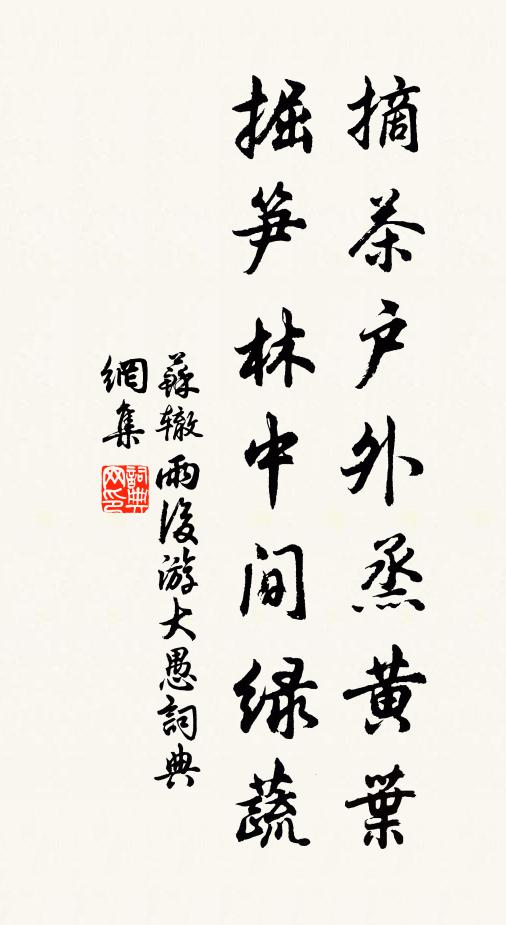 摘茶户外烝黄葉
掘笋林中间绿蔬
蘇辙雨後游大愚詞典
網集
詞典
网印